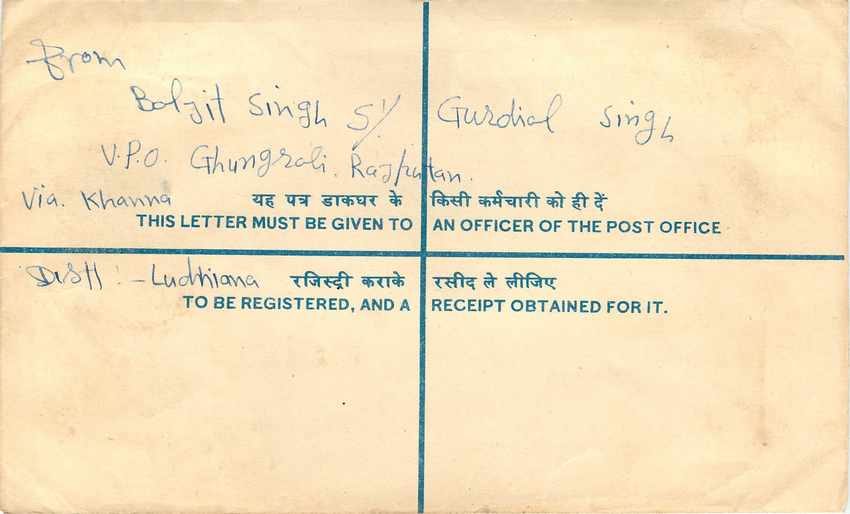 From
Baljit Singh S/ Gurdial Singh
V.P.O. Ghungrali. Rajputan.
Via. Khanna
यह पत्र डाकघर के किसी कर्मचारी को ही दें
THIS LETTER MUST BE GIVEN TO AN OFFICER OF THE POST OFFICE
Distt :- Ludhiana
रजिस्ट्री कराके रसीद ले लीजिए
TO BE REGISTERED, AND A RECEIPT OBTAINED FOR IT.